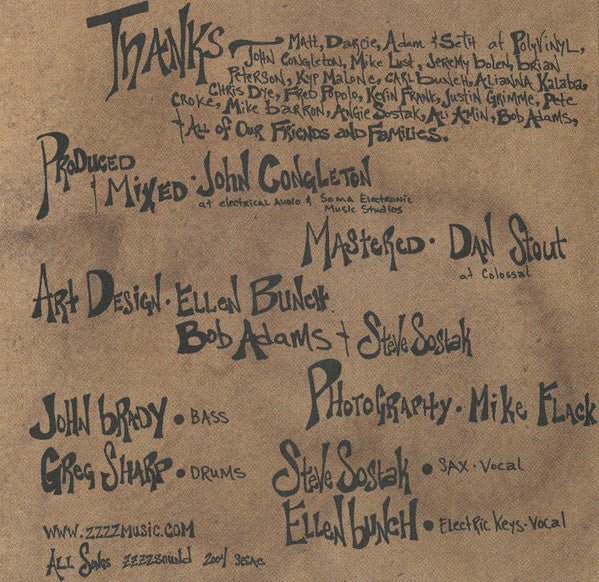 THANKS - MATT, DARCIE, ADAM & SETH at POLYVINYL,
JOHN CONGLETON, MIKE LUST, JEREMY BOLEN, BRIAN
PETERSON, KYP MALONE, CARL BUNCH, ALIANNA KALABA,
CHRIS DYE, FRED POPOLO, KEVIN FRANK, JUSTIN GRIMME, PETE
CROKE, MIKE BARRON, ANGIE SOSTAK, ALI AMIN, BOB ADAMS,
+ ALL OF OUR FRIENDS AND FAMILIES.
PRODUCED
+ MIXED · JOHN CONGLETON
at electrical AUDIO & Soma Electronic
Music Studios
MASTERED · DAN STOUT
at Colossal
ART DESIGN · ELLEN BUNCH
BOB ADAMS + STEVE SOSTAK
PHOTOGRAPHY · MIKE FLACK
JOHN BRADY • BASS
GREG SHARP • DRUMS
STEVE SOSTAK • SAX · VOCAL
ELLEN BUNCH • ELECTRIC KEYS · VOCAL
WWW.ZZZZMUSIC.COM
ALL SONGS ZZZZSOUND 2004 SESAC